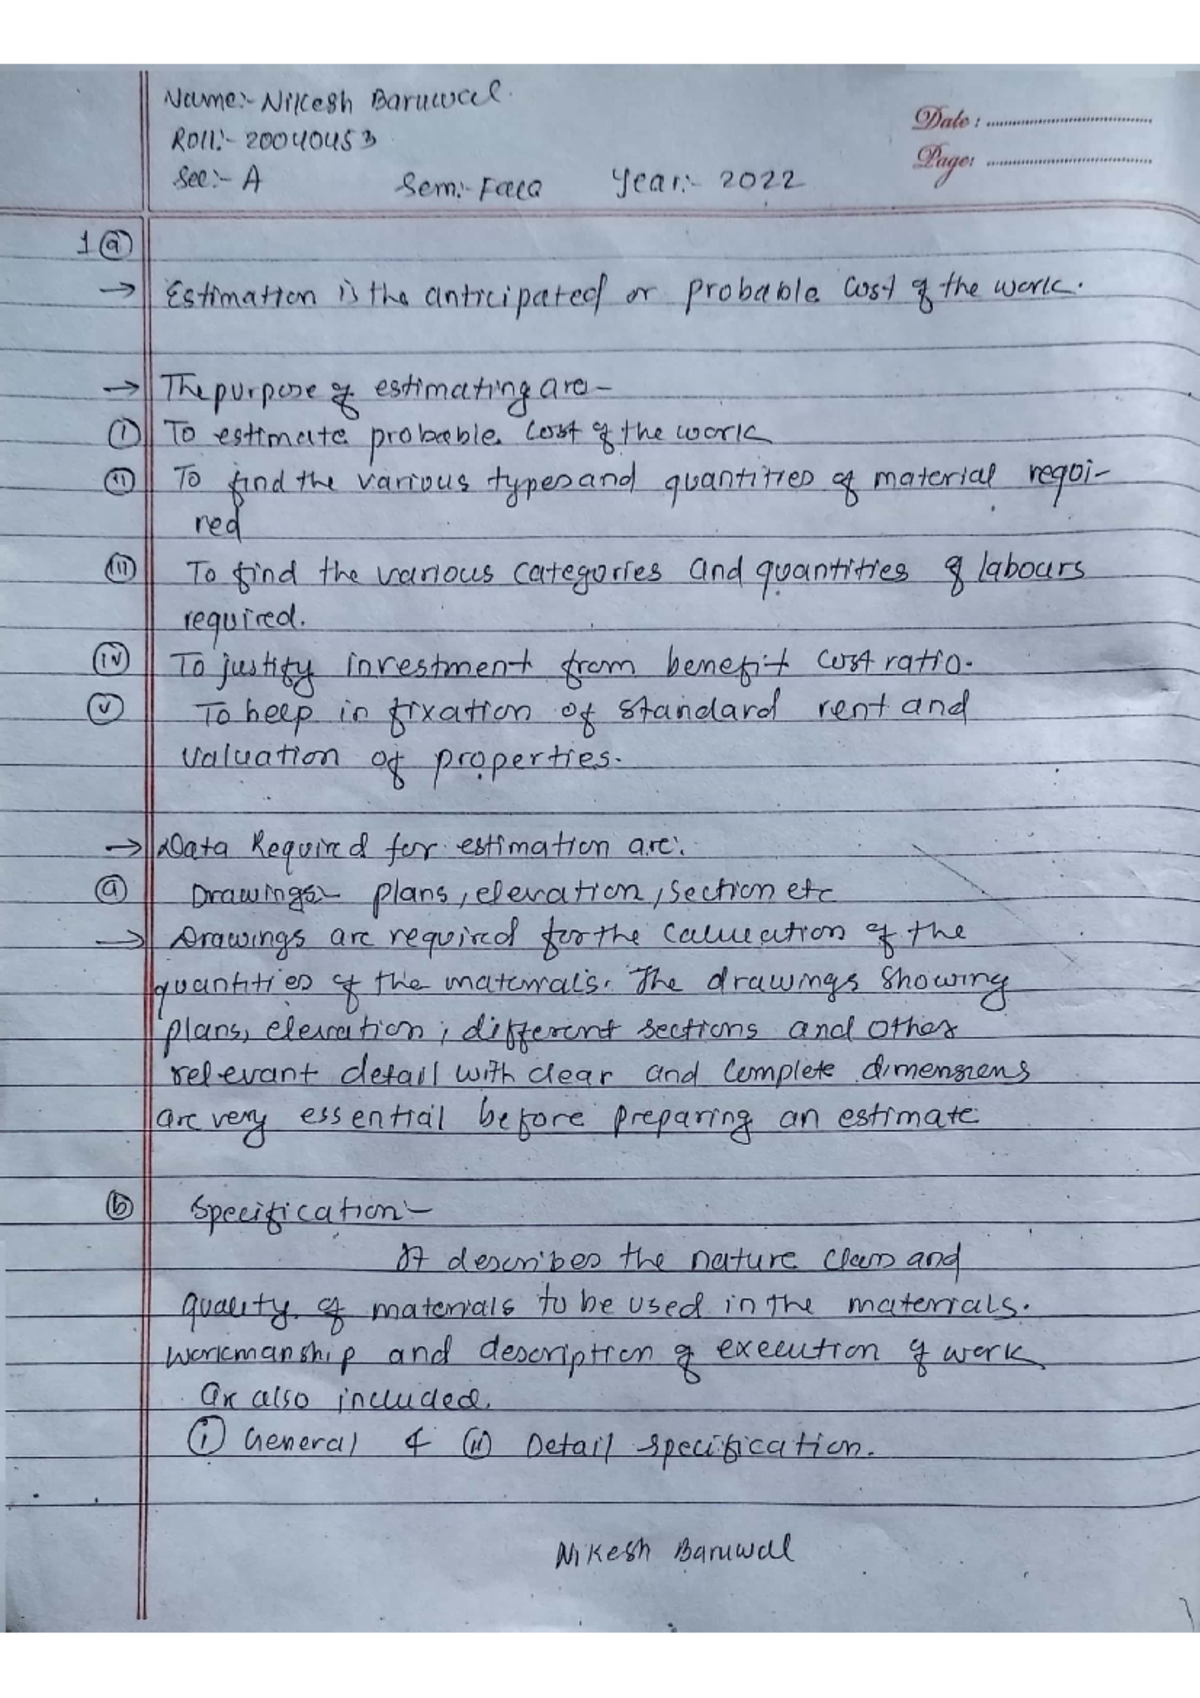 Name:- Nikesh Baruwal.
Date : ........................................
Roll:- 20040453
Page: ........................................
Sec:- A Sem:- Fall Year:- 2022
1 (a)
→ Estimation is the anticipated or probable cost of the work.
→ The purpose of estimating are-
(i) To estimate probable cost of the work
(ii) To find the various types and quantities of material requi-
red
(iii) To find the various categories and quantities of labours
required.
(iv) To justify investment from benefit cost ratio.
(v) To help in fixation of standard rent and
valuation of properties.
→ Data Required for estimation are:
(a) Drawings:- plans, elevation, section etc
→ Drawings are required for the calculation of the
quantities of the materials. The drawings showing
plans, elevation, different sections and other
relevant detail with clear and complete dimensions
are very essential before preparing an estimate
(b) Specification:-
It describes the nature class and
quality of materials to be used in the materials.
workmanship and description of execution of work
are also included.
(i) General & (ii) Detail specification.
Nikesh Baruwal